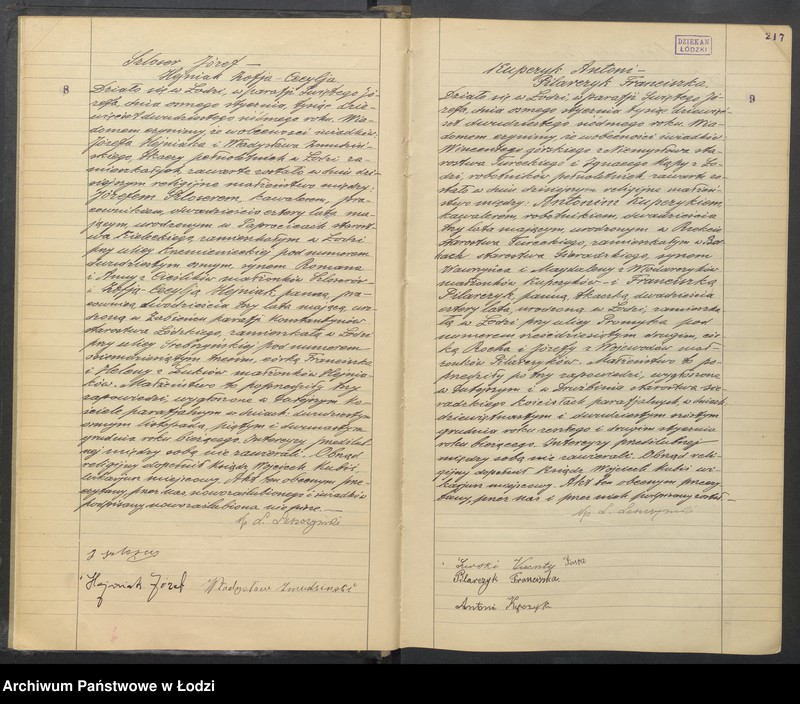 Szlosor Józef –
Hejniak Zofja-Cecylja
8
Działo się w Łodzi, w parafji Świętego Jó-
zefa, dnia ósmego stycznia, tysiąc dzie-
więćset dwudziestego siódmego roku. Wia-
domem czynimy, że w obecności świadków
Józefa Hejniaka i Władysława Żmudziń-
skiego, tkaczy pełnoletnich w Łodzi za-
mieszkałych, zawarte zostało w dniu dzi-
siejszym religijne małżeństwo między:
Józefem Szlosorem, kawalerem, pra-
cownikiem, dwadzieścia cztery lata ma-
jącym, urodzonym w Paprocicach staros-
twa Kieleckiego, zamieszkałym w Łodzi
przy ulicy Krzemienieckiej pod numerem
dwudziestym ósmym, synem Romana
i Anny z małżonków Szlosorów
i Zofją-Cecylją Hejniak, panną, pra-
cownicą, dwadzieścia trzy lata mającą, uro-
dzoną w Żabicach parafji Konstantynów
starostwa Łódzkiego, zamieszkałą w Łodzi
przy ulicy Srebrzyńskiej pod numerem
osiemdziesiątym trzecim, córką Franciszka
i Heleny z małżonków Hejnia-
ków. Małżeństwo to poprzedziły trzy
zapowiedzi, wygłoszone w tutejszym ko-
ściele parafjalnym w dniach: dwudziestym
ósmym listopada, piątym i dwunastym
grudnia roku bieżącego. Intercyzy przedślub-
nej między sobą nie zawierali. Obrzęd
religijny dopełnił Ksiądz Wojciech Kubiś
wikarjusz miejscowy. Akt ten obecnym prze-
czytany, przez nas, nowozaślubionego i świadków
podpisany, nowozaślubiona nie pisze. –
Hejniak Józef Władysław Żmudziński
DZIEKAN
ŁÓDZKI
217
Kupczyk Antoni –
Pilarczyk Franciszka.
9
Działo się w Łodzi, w parafji Świętego Jó-
zefa, dnia ósmego stycznia tysiąc dziewięć-
set dwudziestego siódmego roku. Wia-
domem czynimy, że w obecności świadków
Wincentego Górskiego z Niemysłowa sta-
rostwa Tureckiego i Ignacego Kępy z Ło-
dzi, robotników pełnoletnich, zawarte zo-
stało w dniu dzisiejszym religijne małżeń-
stwo między: Antonim Kupczykiem,
kawalerem, robotnikiem, dwadzieścia
trzy lata mającym, urodzonym w
starostwa Tureckiego, zamieszkałym w
starostwa Sieradzkiego, synem
Wawrzyńca i Magdaleny z Włodarczyków
małżonków Kupczyków – i Franciszką
Pilarczyk, panną, tkaczką, dwadzieścia
cztery lata, urodzoną w Łodzi, zamieszka-
łą w Łodzi przy ulicy Promyka pod
numerem sześćdziesiątym drugim, cór-
ką Rocha i Józefy z Wojewodów mał-
żonków Pilarczyków. Małżeństwo to po-
przedziły po trzy zapowiedzi, wygłoszone
w tutejszym i w Drużbinie starostwa Sie-
radzkiego kościołach parafjalnych, w dniach
dziewiętnastym i dwudziestym szóstym
grudnia roku zeszłego i drugim stycznia
roku bieżącego. Intercyzy przedślubnej
między sobą nie zawierali. Obrzęd reli-
gijny dopełnił Ksiądz Wojciech Kubiś wi-
karjusz miejscowy. Akt ten obecnym przeczy-
tany, przez nas i przez nich podpisany został –
Pilarczyk Franciszka.
Antoni Kupczyk
Archiwum Państwowe w Łodzi